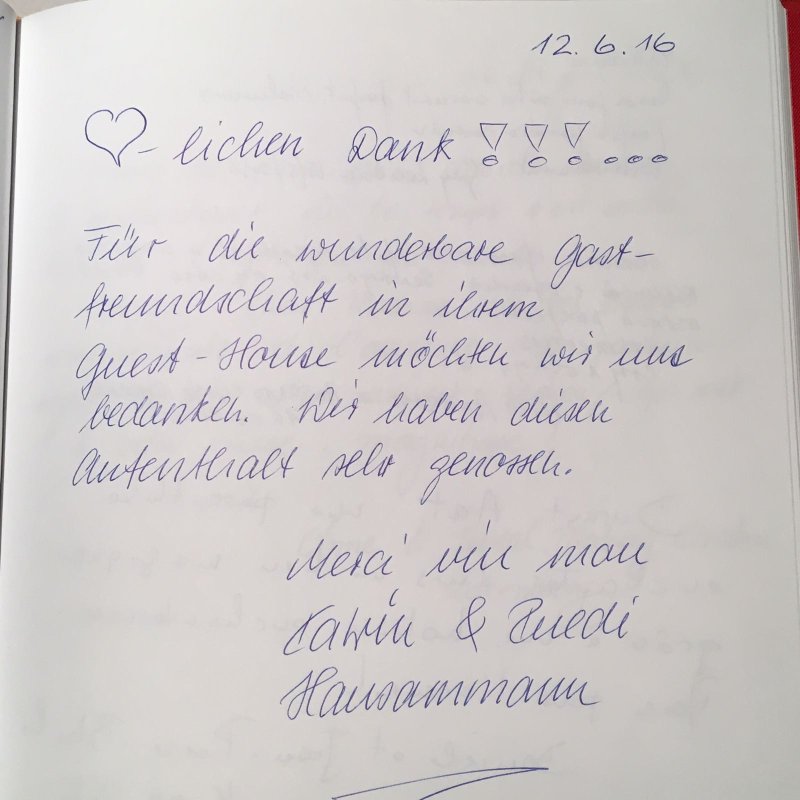 12. 6. 16
♡-lichen Dank !!!...
Für die wunderbare Gast-
freundschaft in ihrem
Guest-House möchten wir uns
bedanken. Wir haben diesen
Aufenthalt sehr genossen.
Merci vil mau
Katrin & Ruedi
Hausammann